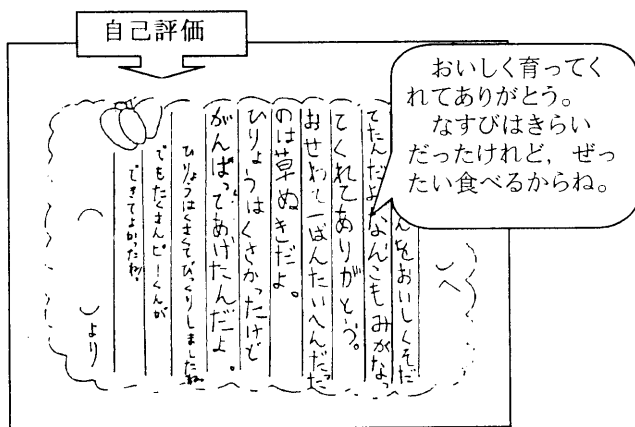 自己評価
おいしく育ってく
れてありがとう。
なすびはきらい
だったけれど，ぜっ
たい食べるからね。
へ
んをおいしくそだ
てたんだよ。なんこもみがなっ
てくれてありがとう。
おせわで一ばんたいへんだった
のは草ぬきだよ。
ひりょうはくさかったけど
がんばってあげたんだよ。
ひりょうはくさくてびっくりしましたね
でもたくさんピーくんが
できてよかったね。
より